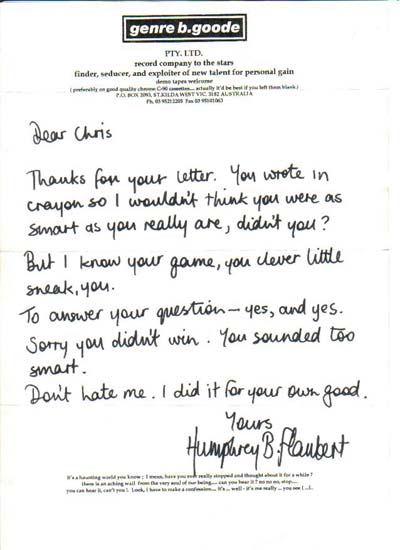 genre b.goode
PTY. LTD.
record company to the stars
finder, seducer, and exploiter of new talent for personal gain
demo tapes welcome
( preferably on good quality chrome C-90 cassettes... actually it'd be best if you left them blank.)
P.O. BOX 2093, ST.KILDA WEST VIC. 3182 AUSTRALIA
Ph. 03 95212205 Fax 03 95101063
Dear Chris
Thanks for your letter. You wrote in
crayon so I wouldn't think you were as
smart as you really are, didn't you?
But I know your game, you clever little
sneak, you.
To answer your question – yes, and yes.
Sorry you didn't win. You sounded too
smart.
Don't hate me. I did it for your own good.
Yours
Humphrey B. Flaubert
It's a haunting world you know ; I mean, have you ever really stopped and thought about it for a while ?
there is an aching wail from the very soul of our being.... can you hear it ? no no no, stop....
you can hear it, can't you !. Look, I have to make a confession.... It's ... well - it's me really ... you see I ...I..